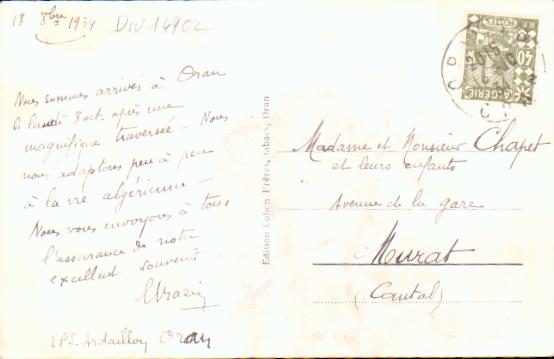 18 8bre 1934
DIV 14902
Nous sommes arrivés à Oran
le lundi 8 oct. après une
magnifique traversée - Nous
nous adaptons peu à peu
à la vie algérienne -
Nous vous envoyons à tous
l'assurance de notre
excellent souvenir.
EPS. Ardaillon Oran
Edition Cohen Frères, tabacs, Oran
POSTES
40
ALGERIE
Madame et Monsieur Chapet
et leurs enfants
Avenue de la gare
Murat
(Cantal)